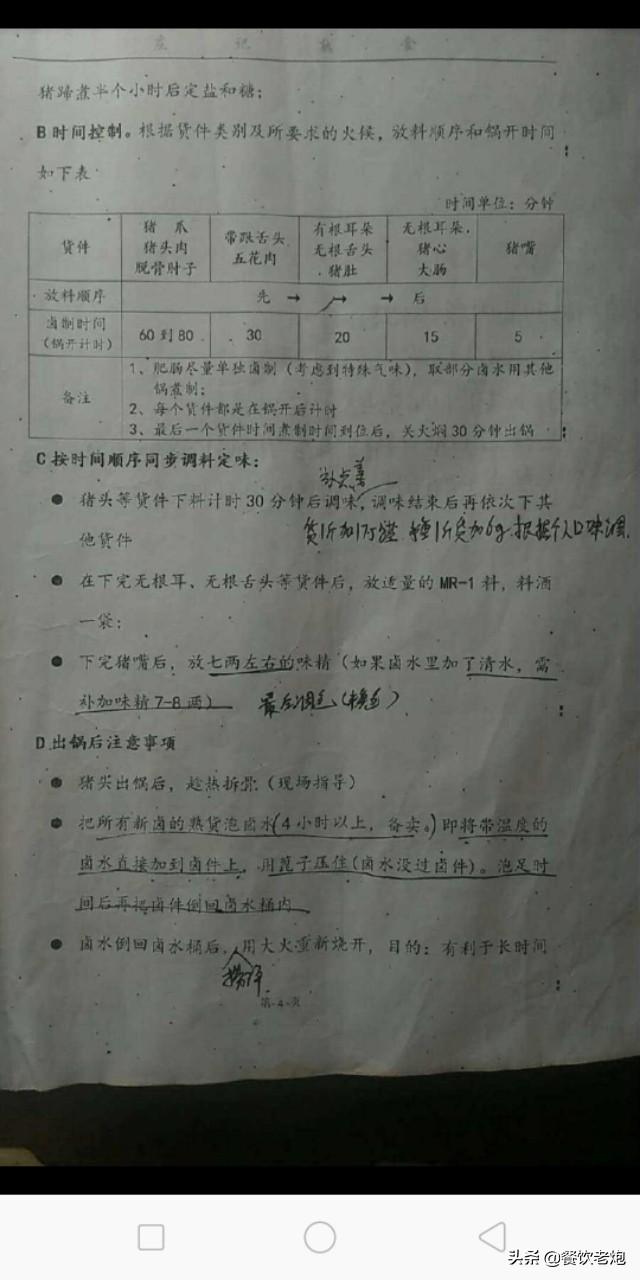 庄记熟食
猪蹄煮半个小时后定盐和糖；
B 时间控制。根据货件类别及所要求的火候，放料顺序和锅开时间
如下表
时间单位：分钟
货件 猪 爪 猪头肉 脱骨肘子 带跟舌头 五花肉 有根耳朵 无根舌头 猪肚 无根耳朵、猪心 大肠 猪嘴
放料顺序 先 → → → 后
卤制时间（锅开计时） 60 到 80 30 20 15 5
备注
1、肥肠尽量单独卤制（考虑到特殊气味），取部分卤水用其他
锅煮制；
2、每个货件都是在锅开后计时
3、最后一个货件时间煮制时间到位后，关火焖 30 分钟出锅
C 按时间顺序同步调料定味：
● 猪头等货件下料计时 30 分钟后调味，调味结束后再依次下其
他货件
● 在下完无根耳、无根舌头等货件后，放适量的 MR-1 料，料酒
一袋；
● 下完猪嘴后，放七两左右的味精（如果卤水里加了清水，需
补加味精 7-8 两）
最后调色（
D 出锅后注意事项
● 猪头出锅后，趁热拆骨（现场指导）
● 把所有新卤的熟货泡卤水（4 小时以上，备实。）即将带温度的
卤水直接加到卤件上，用篦子压住（卤水没过卤件）。泡足时
间后再把卤件倒回卤水桶内
● 卤水倒回卤水桶后，用大火重新烧开，目的：有利于长时间
第-4-页
头条 @餐饮老炮